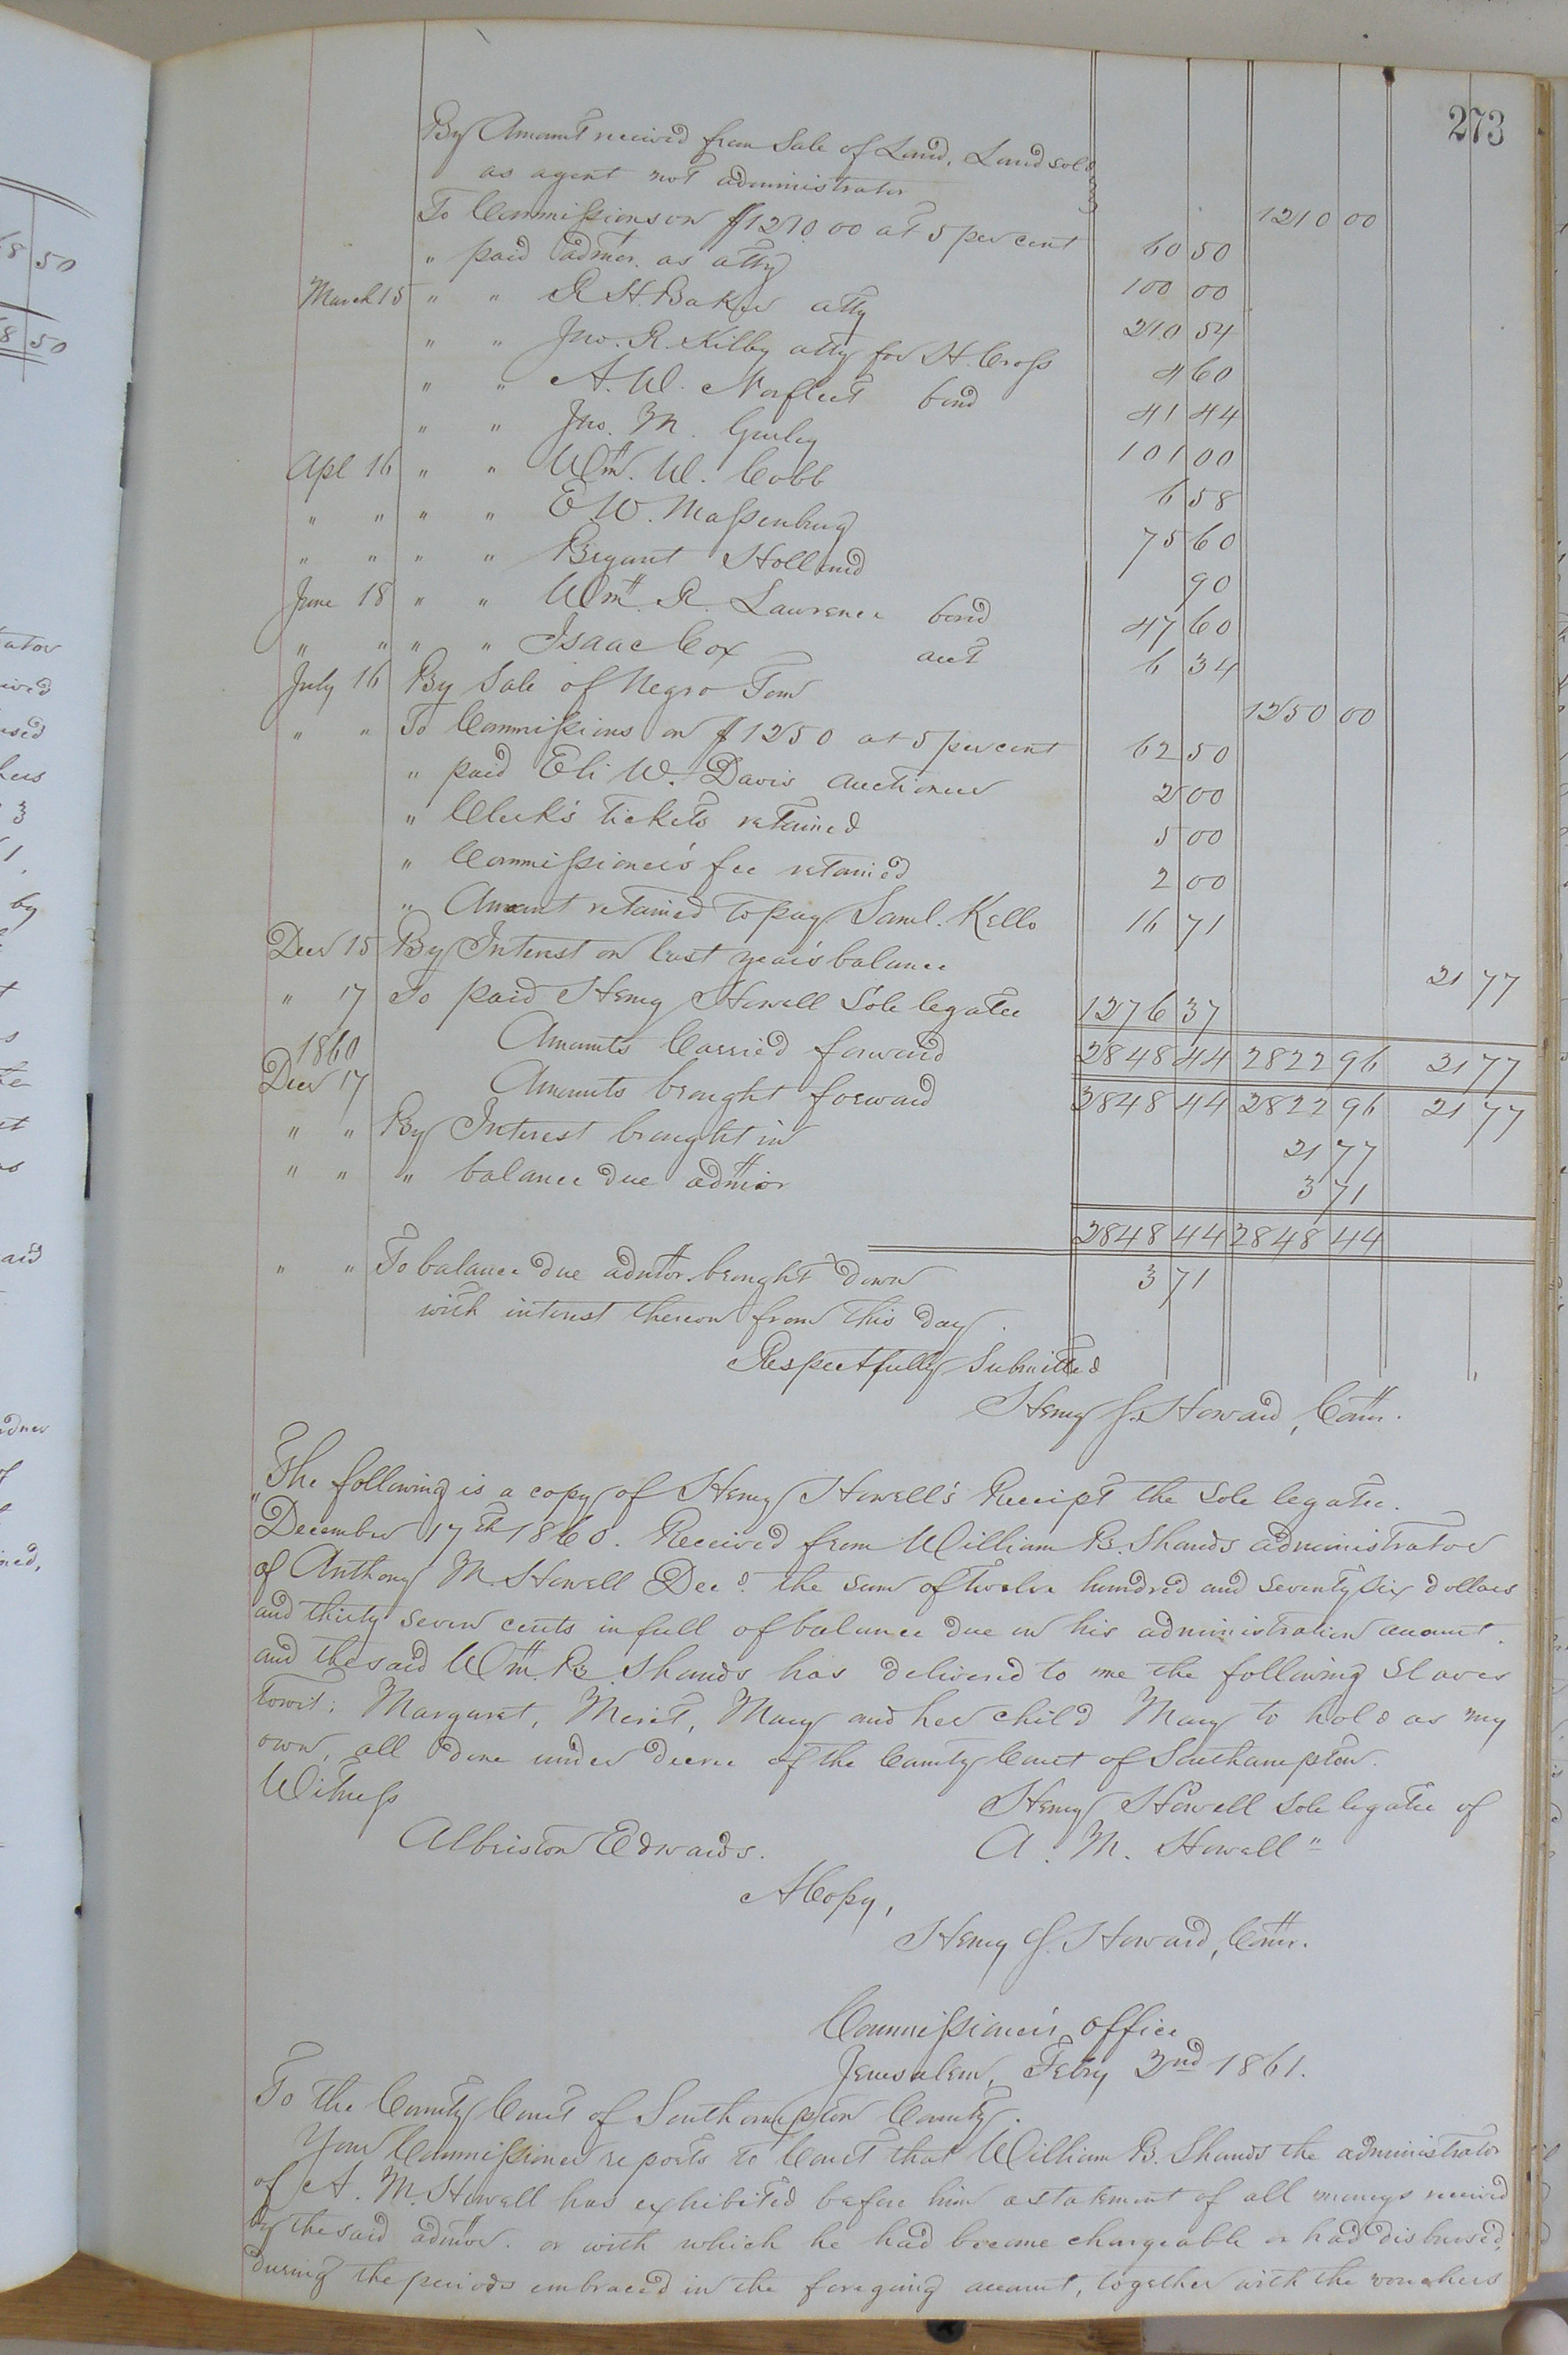 273
By Amount received from Sale of Land, Land sold
as agent not administrator 1210 00
To Commissions on $1210 00 at 5 per cent 60 50
" paid admor. as atty 100 00
March 15 " " R H. Baker atty 210 54
" " Jno. R. Kilby atty for H. Cross 4 60
" " A. W. Norfleet bond 41 44
" " Jno. M. Gurley 101 00
Apl 16 " " Wm. W. Cobb 6 58
" " " " E. W. Massenburg 75 60
" " " " Bryant Holland 90
June 18 " " Wm. R. Lawrence bond 47 60
" " " " Isaac Cox acct 6 34
July 16 By Sale of Negro Tom 1250 00
" " To Commissions on $1250 at 5 per cent 62 50
" paid Eli W. Davis auctioneer 2 00
" Clerk's tickets retained 5 00
" Commissioner's fee retained 2 00
" Amount retained to pay Saml. Kello 16 71
Decr 15 By Interest on last year's balance 21 77
" 17 To paid Henry Howell Sole legatee 1276 37
Amounts Carried forward 2848 44 2822 96 21 77
1860
Decr 17 Amounts brought forward 2848 44 2822 96 21 77
" " By Interest brought in 21 77
" " " balance due admor 3 71
2848 44 2848 44
" " To balance due admor. brought down 3 71
with interest thereon from this day.
Respectfully Submitted
Henry J. Howard, Comr.
The following is a copy of Henry Howell's Receipt the sole legatee.
"December 17th 1860. Received from William B. Shands administrator
of Anthony M. Howell Decd. the sum of twelve hundred and seventy six dollars
and thirty seven cents in full of balance due on his administration account.
and the said Wm B. Shands has delivered to me the following slaves
towit: Margaret, Merit, Mary and her child Mary to hold as my
own, all done under decree of the County Court of Southampton.
Witness Henry Howell sole legatee of
Albriston Edwards. A. M. Howell"
A Copy,
Henry J. Howard, Comr.
Commissioner's office
Jerusalem, Feby 2nd 1861.
To the County Court of Southampton County.
Your Commissioner reports to Court that William B. Shands the administrator
of A. M. Howell has exhibited before him a statement of all moneys received
by the said admor. or with which he had become chargeable or had disbursed,
during the periods embraced in the foregoing account, together with the vouchers